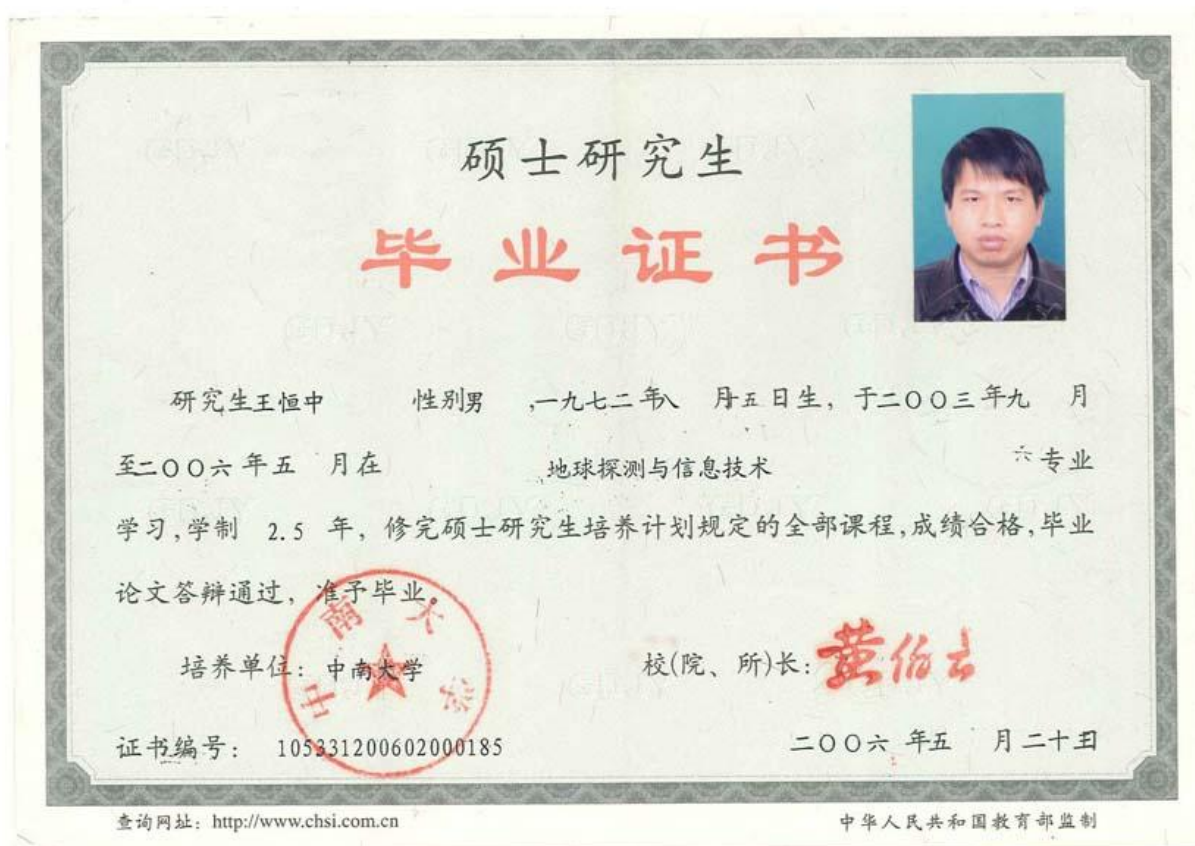 硕士研究生
毕业证书
研究生王恒中 性别男 ,一九七二年八 月十五日生，于二〇〇三年九 月
至二〇〇六年五 月在 地球探测与信息技术 专业
学习,学制 2.5 年，修完硕士研究生培养计划规定的全部课程,成绩合格,毕业
论文答辩通过，准予毕业。
中南大学
培养单位：中南大学 校(院、所)长：黄伯云
证书编号： 105331200602000185 二〇〇六 年五 月二十日
查询网址：http://www.chsi.com.cn 中华人民共和国教育部监制